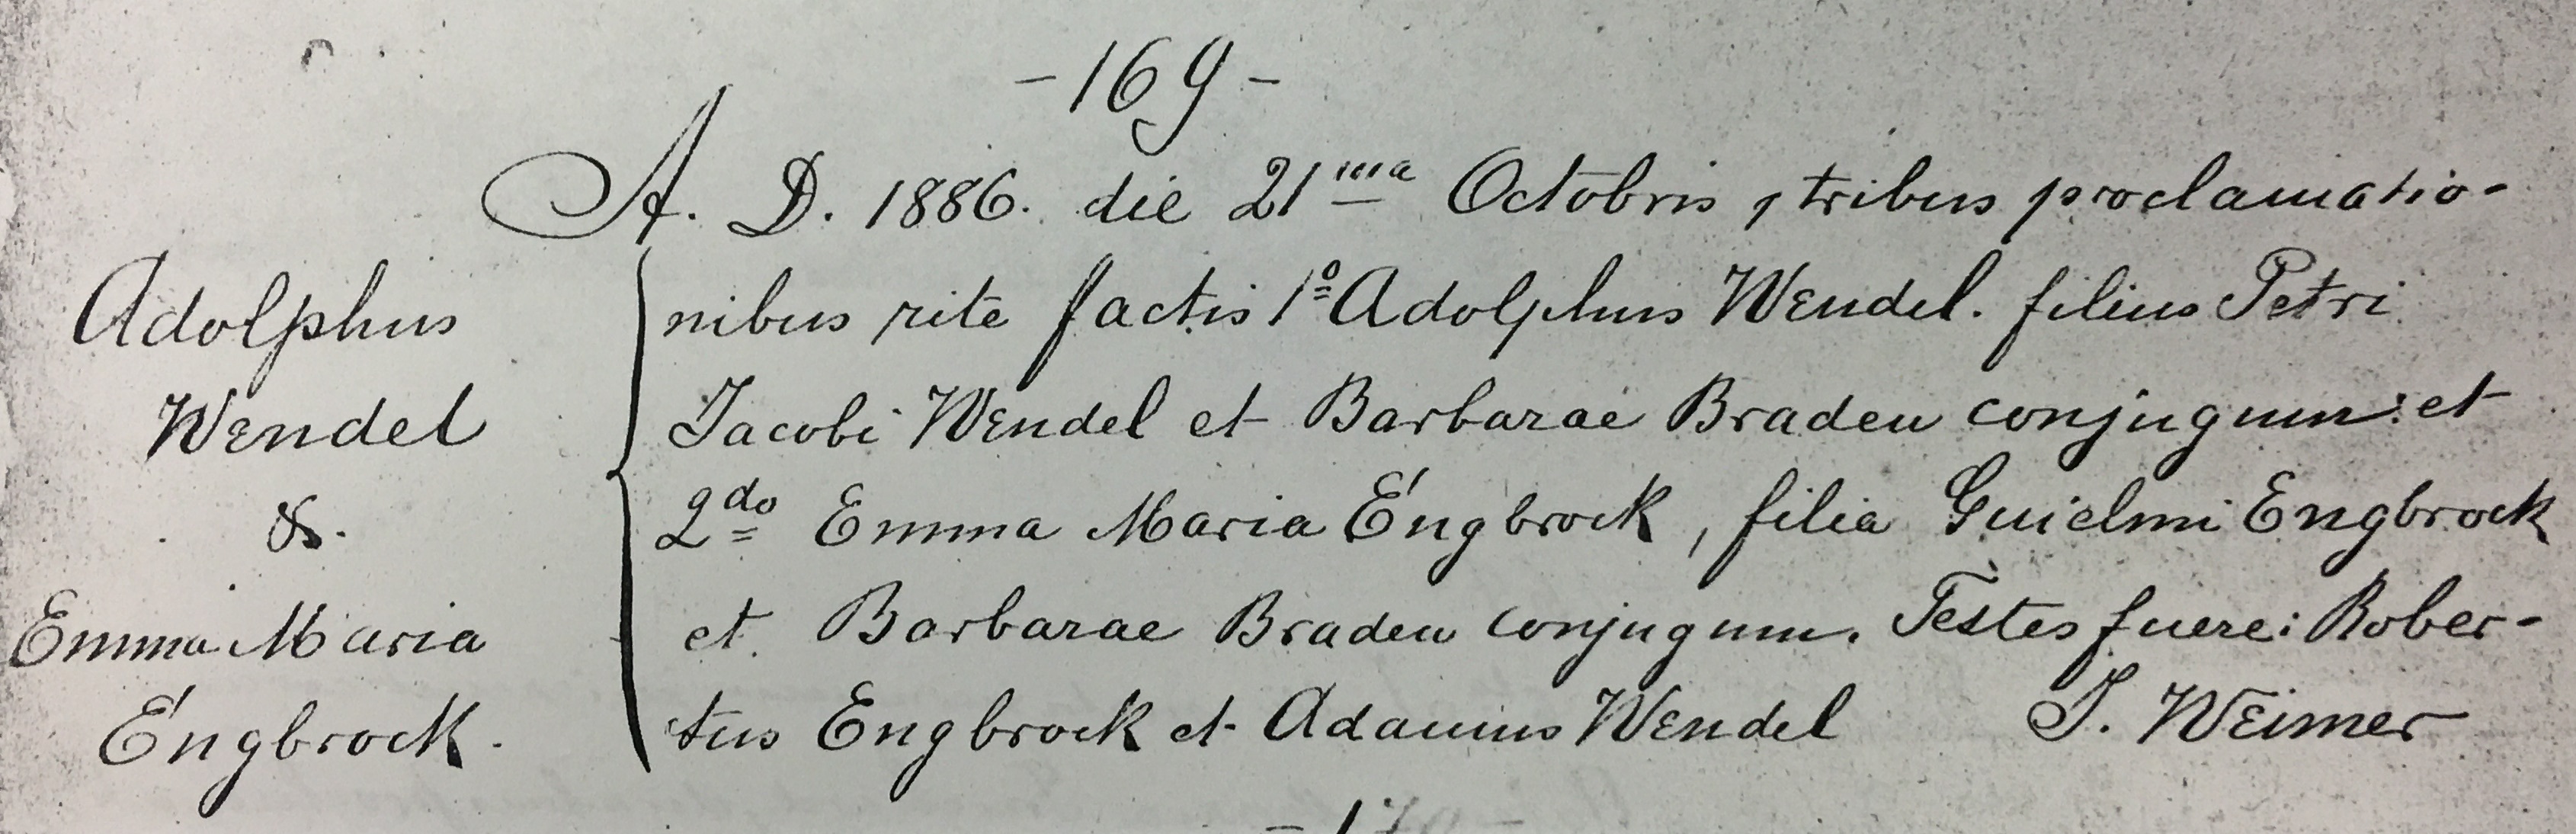 -169-
A. D. 1886. die 21ma Octobris, tribus proclamatio-
Adolphus
nibus rite factis 1o Adolphus Wendel. filius Petri
Wendel
Jacobi Wendel et Barbarae Braden conjugum: et
&.
2do Emma Maria Engbrock, filia Guielmi Engbrock
Emma Maria
et Barbarae Braden conjugum. Testes fuere: Rober-
Engbrock.
tus Engbrock et Adamus Wendel J. Weimer
-170-